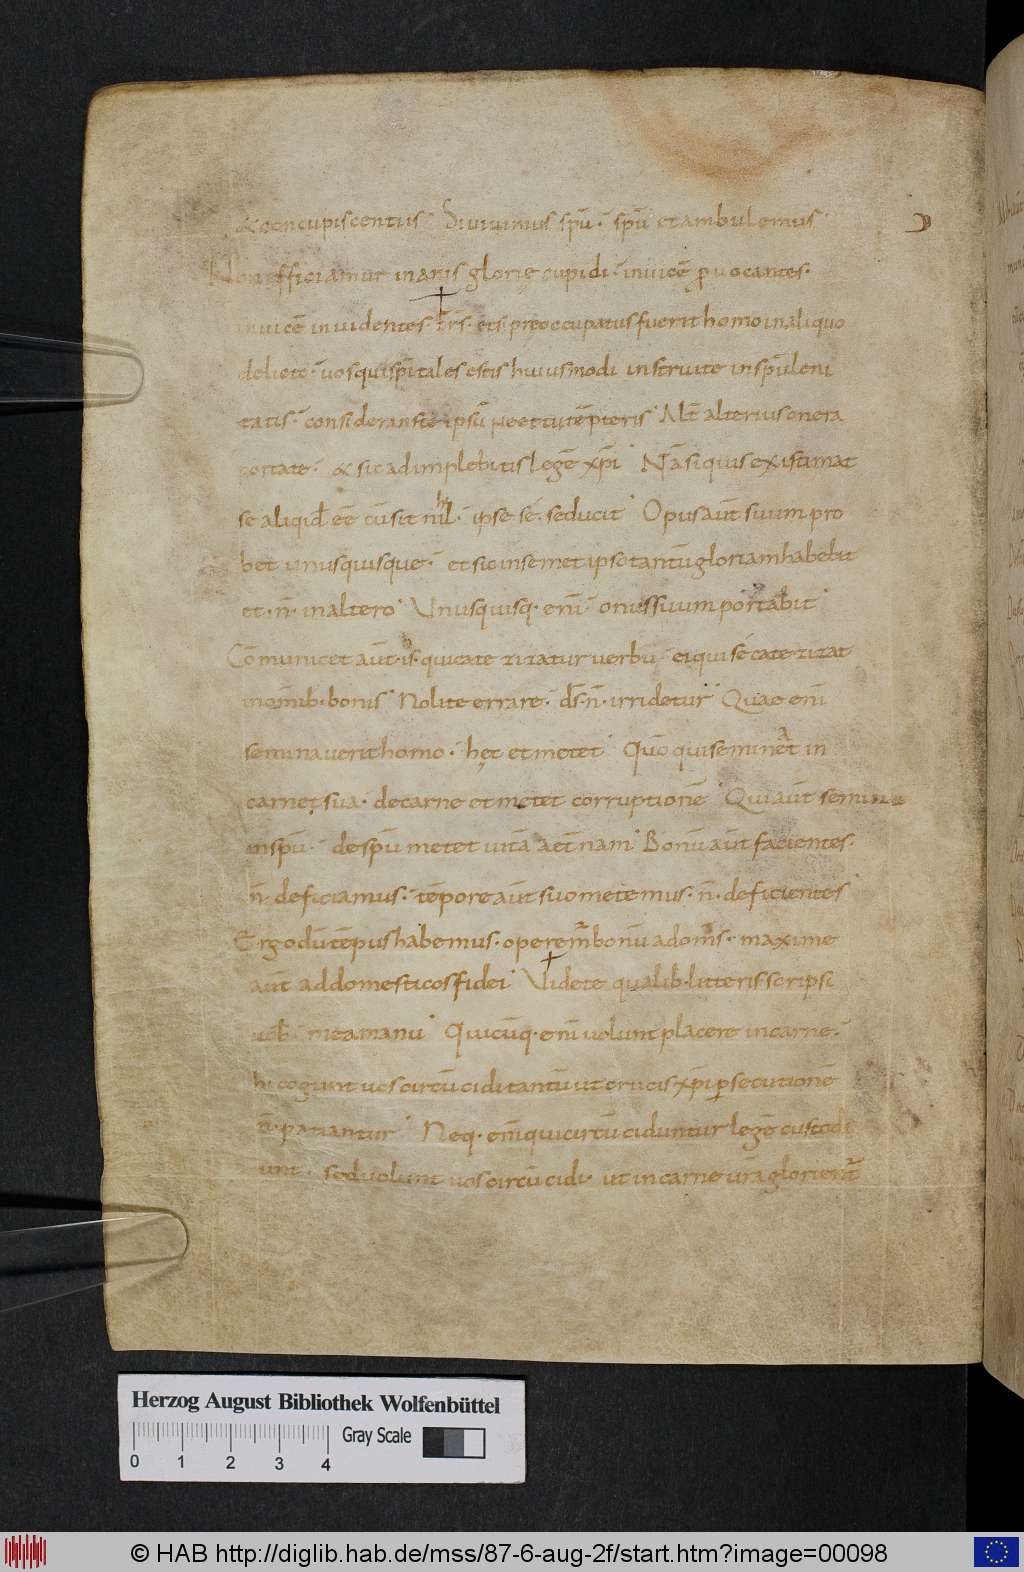 & concupiscentiis· Si uiuimus spū· spū et ambulemus·
Non efficiamur inanis glorię cupidi· inuicē ꝓuocantes·
inuicē inuidentes· frs̄· etsi pręoccupatus fuerit homo in aliquo
delicto· uos qui spītales estis huiusmodi instruite in spū leni
tatis· considerans te ipsū ne et tu tēpteris· Alt̄ alterius onera
portate· & sic adimplebitis legē xp̄i· Nā si quis existimat
se aliqid eē cū sit nihil· ipse sé seducit· Opus aūt suum pro
bet unusquisque· et sic in semet ipso tantū gloriam habebit
et· n̄· in altero· Unusquisq· enī· onus suum portabit·
Cōmunicet aūt· is· qui catezizatur uerbū· ei qui sé catezizat
in omīb· bonis· Nolite errare· ds̄· n̄· irridetur· Quae enī
seminauerit homo· hęc et metet· Qūo qui seminat in
carnę sua· de carne et metet corruptionē· Qui aūt seminat
in spū· de spū metet uitā aet̄nam· Bonū aūt facientes·
n̄· deficiamus· tēpore aūt suo metemus· n̄· deficientes·
Ergo dū tēpus habemus· operem̄ bonū ad om̄s· maxime
aūt ad domesticos fidei· Videte qualib· litteris scripsi
uob̄ mea manu· Quicūq· enī uolunt placere in carne·
hi cogunt uos circūcidi tantū ut crucis xp̄i ꝑsecutionē
n̄· patiantur· Neq· enī qui circūciduntur legē custodi
unt· sed uolunt uos circūcidi· ut in carne ur̄a glorient̄
Herzog August Bibliothek Wolfenbüttel
Gray Scale
0 1 2 3 4
© HAB http://diglib.hab.de/mss/87-6-aug-2f/start.htm?image=00098